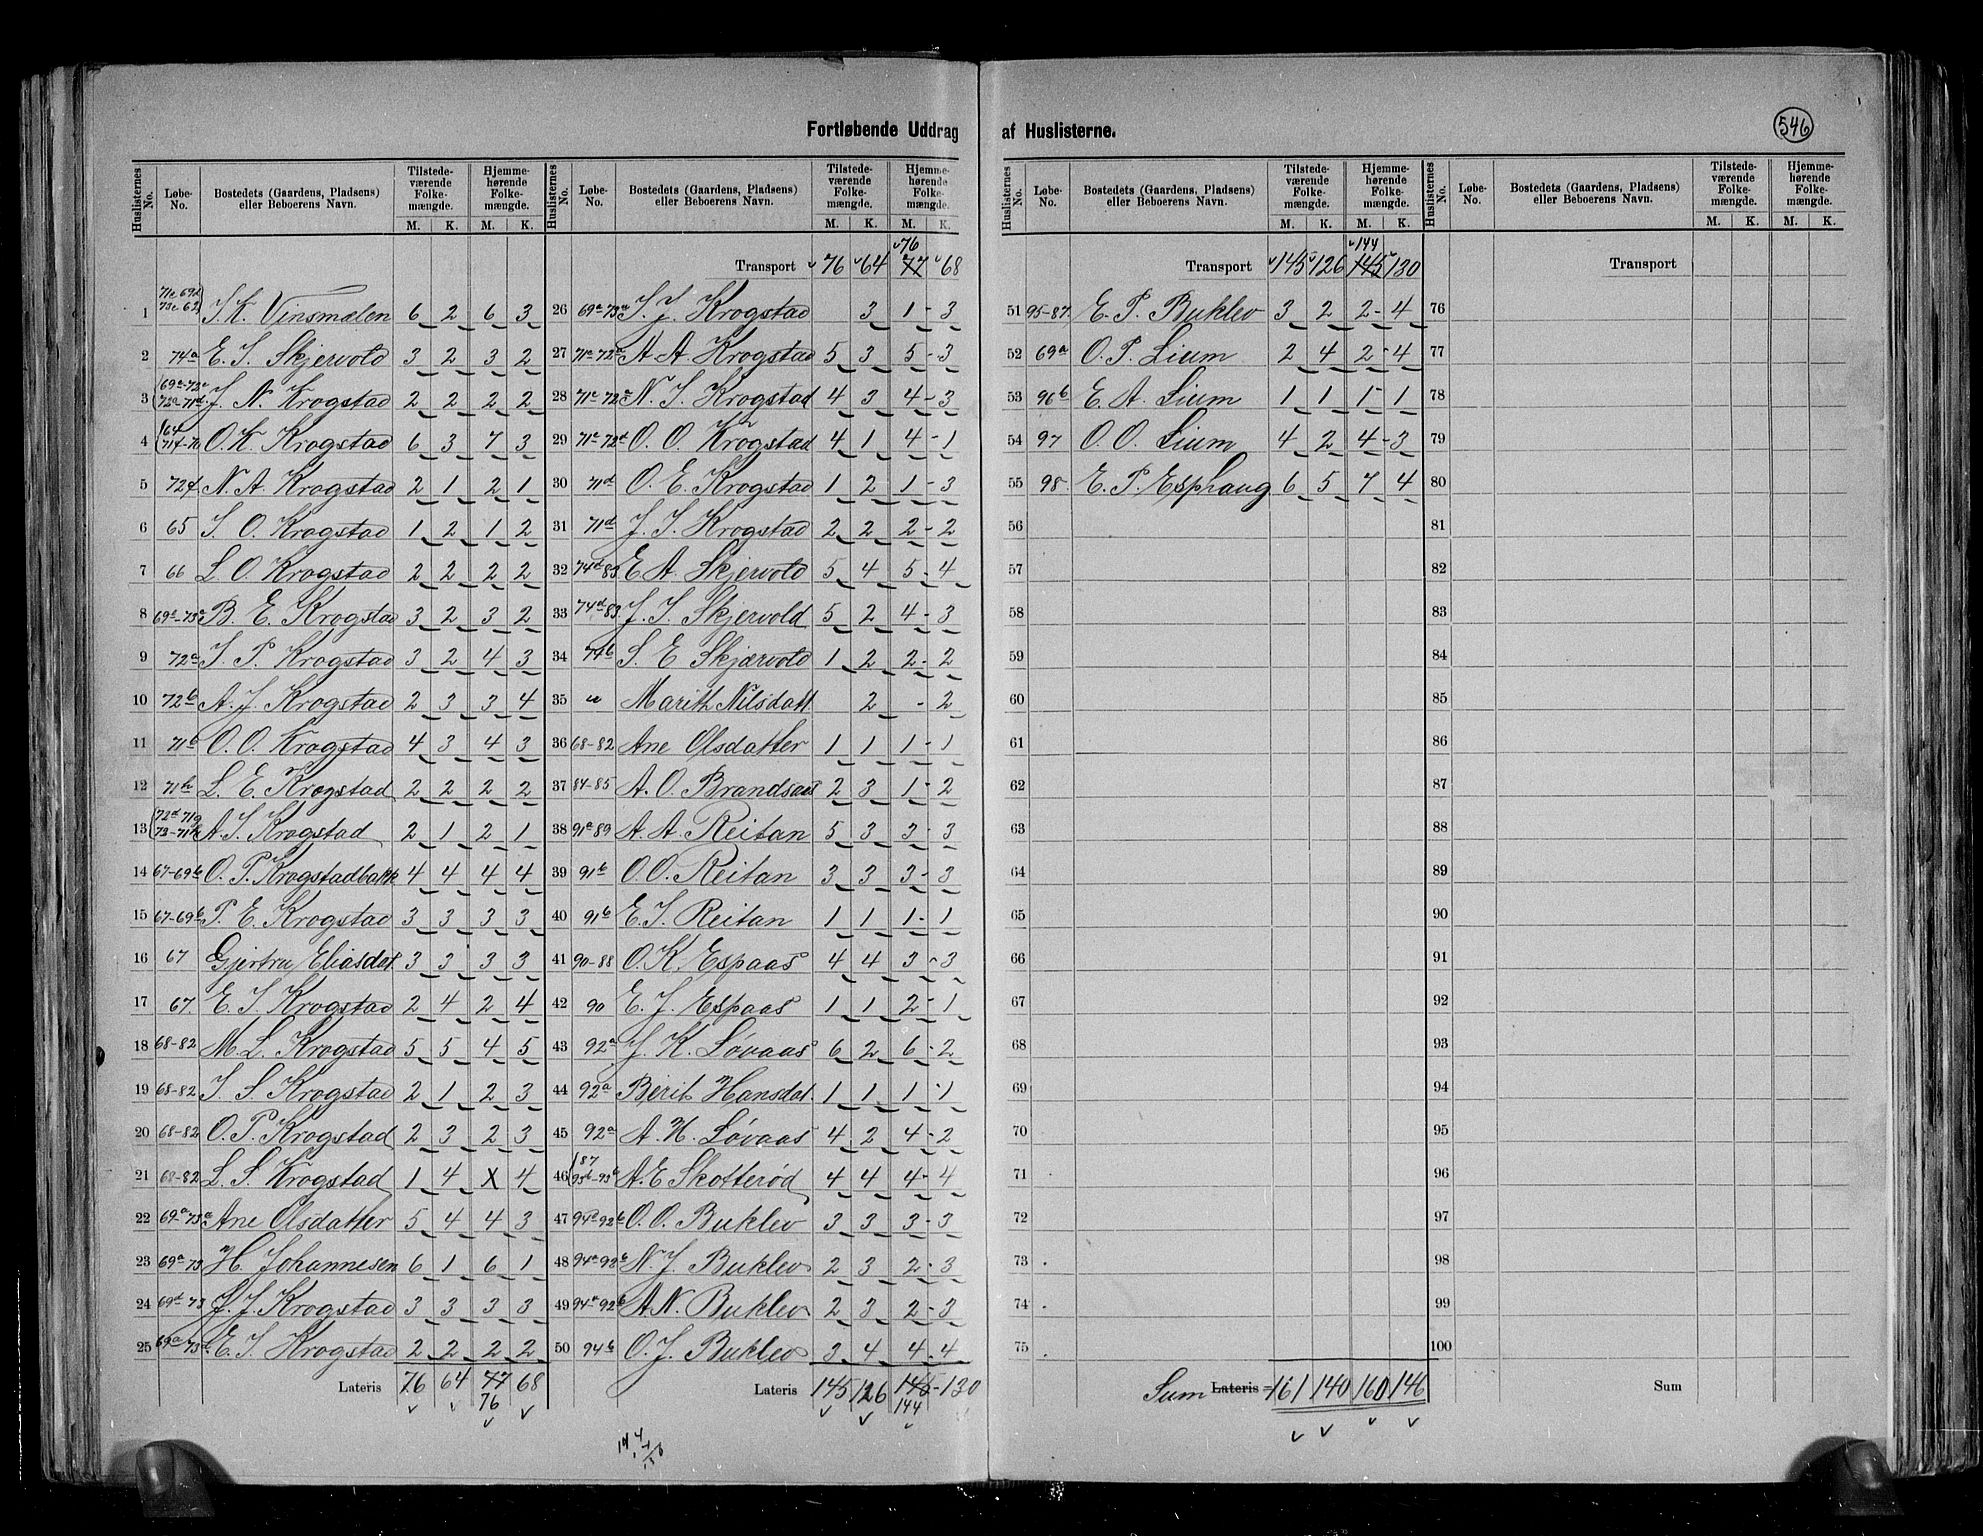 Fortløbende Uddrag af Huslisterne.
546
Huslisternes No. Løbe-No. Bostedets (Gaardens, Pladsens) eller Beboerens Navn. Tilstedeværende Folkemængde. M. K. Hjemmehørende Folkemængde. M. K.
1 J. K. Vinsmælen 6 2 6 3
2 74a E. J. Skjervold 3 2 3 2
3 69a-72a 72a-71d J. N. Krogstad 2 2 2 2
4 64 O. K. Krogstad 6 3 7 3
5 72f N. A. Krogstad 2 1 2 1
6 65 J. O. Krogstad 1 2 1 2
7 66 L. O. Krogstad 2 2 2 2
8 69a-73a B. E. Krogstad 3 2 3 2
9 72a J. P. Krogstad 3 2 4 3
10 72b A. J. Krogstad 2 3 3 4
11 71b O. O. Krogstad 4 3 4 3
12 71b L. E. Krogstad 2 2 2 2
13 A. J. Krogstad 2 1 2 1
14 67-69b O. P. Krogstadbakk 4 4 4 4
15 67-69b P. E. Krogstad 3 3 3 3
16 67 Gjertru Eliasdat. 3 3 3 3
17 67. E. J. Krogstad 2 4 2 4
18 68-82 M. L. Krogstad 5 5 4 5
19 68-82 J. S. Krogstad 2 1 2 3
20 68-82 O. P. Krogstad 2 3 2 3
21 68-82 L. S. Krogstad 1 4 x 4
22 69a-73a Ane Olsdatter 5 4 4 3
23 69a-73 H. Johannesen 6 1 6 1
24 69d-73 J. J. Krogstad 3 3 3 3
25 69a-73d E. J. Krogstad 2 2 2 2
Lateris 76 64 77 68
76
Huslisternes No. Løbe-No. Bostedets (Gaardens, Pladsens) eller Beboerens Navn. Tilstedeværende Folkemængde. M. K. Hjemmehørende Folkemængde. M. K.
76
Transport 76 64 77 68
26 69a-73a J. J. Krogstad 3 1 - 3
27 A. A. Krogstad 5 3 5 - 3
28 N. J. Krogstad 4 3 4 - 3
29 71a-72d O. O. Krogstad 4 1 4 - 1
30 71d O. E. Krogstad 1 2 1 - 3
31 71d J. J. Krogstad 2 2 2 - 2
32 74d-83 E. A. Skjervold 5 4 5 - 4
33 74d-83. J. J. Skjervold 5 2 4 - 3
34 74b S. E. Skjærvold 1 2 2 - 2
35 " Marith Nilsdatt 2 - 2
36 68-82 Ane Olsdatter 1 1 1 - 1
37 84-85 A. O. Brandsaas 2 3 1 - 2
38 91a-89 A. A. Reitan 5 3 3 - 3
39 91b O. O. Reitan 3 3 3 - 3
40 91b E. J. Reitan 1 1 1 - 1
41 90-88 O. K. Espaas 4 4 3 - 3
42 90 E. J. Espaas 1 1 2 - 1
43 92a J. K. Løvaas 6 2 6 - 2
44 92a Berit Hansdat. 1 1 1 - 1
45 92a A. H. Løvaas 4 2 4 - 2
46 87 93b-93b A. E. Skotterød 4 4 4 - 4
47 94a-92b O. O. Buklev 3 3 3 - 3
48 94a-92b N. J. Buklev 2 3 2 - 3
49 94a-92b A. N. Buklev 2 3 2 - 3
50 94b O. J. Buklev 3 4 4 - 4
Lateris 145 126 145 - 130
144
Huslisternes No. Løbe-No. Bostedets (Gaardens, Pladsens) eller Beboerens Navn. Tilstedeværende Folkemængde. M. K. Hjemmehørende Folkemængde. M. K.
144
Transport 145 126 145 130
51 95-87. E. P. Buklev 3 2 2 - 4
52 69a O. P. Lium 2 4 2 - 4
53 96b E. A. Lium 1 1 1 - 1
54 97 O. O. Lium 4 2 4 - 3
55 98. E. P. Esphaug 6 5 7 4
56
57
58
59
60
61
62
63
64
65
66
67
68
69
70
71
72
73
74
75
Sum Lateris 161 140 160 146
Huslisternes No. Løbe-No. Bostedets (Gaardens, Pladsens) eller Beboerens Navn. Tilstedeværende Folkemængde. M. K. Hjemmehørende Folkemængde. M. K.
Transport
76
77
78
79
80
81
82
83
84
85
86
87
88
89
90
91
92
93
94
95
96
97
98
99
100
Sum